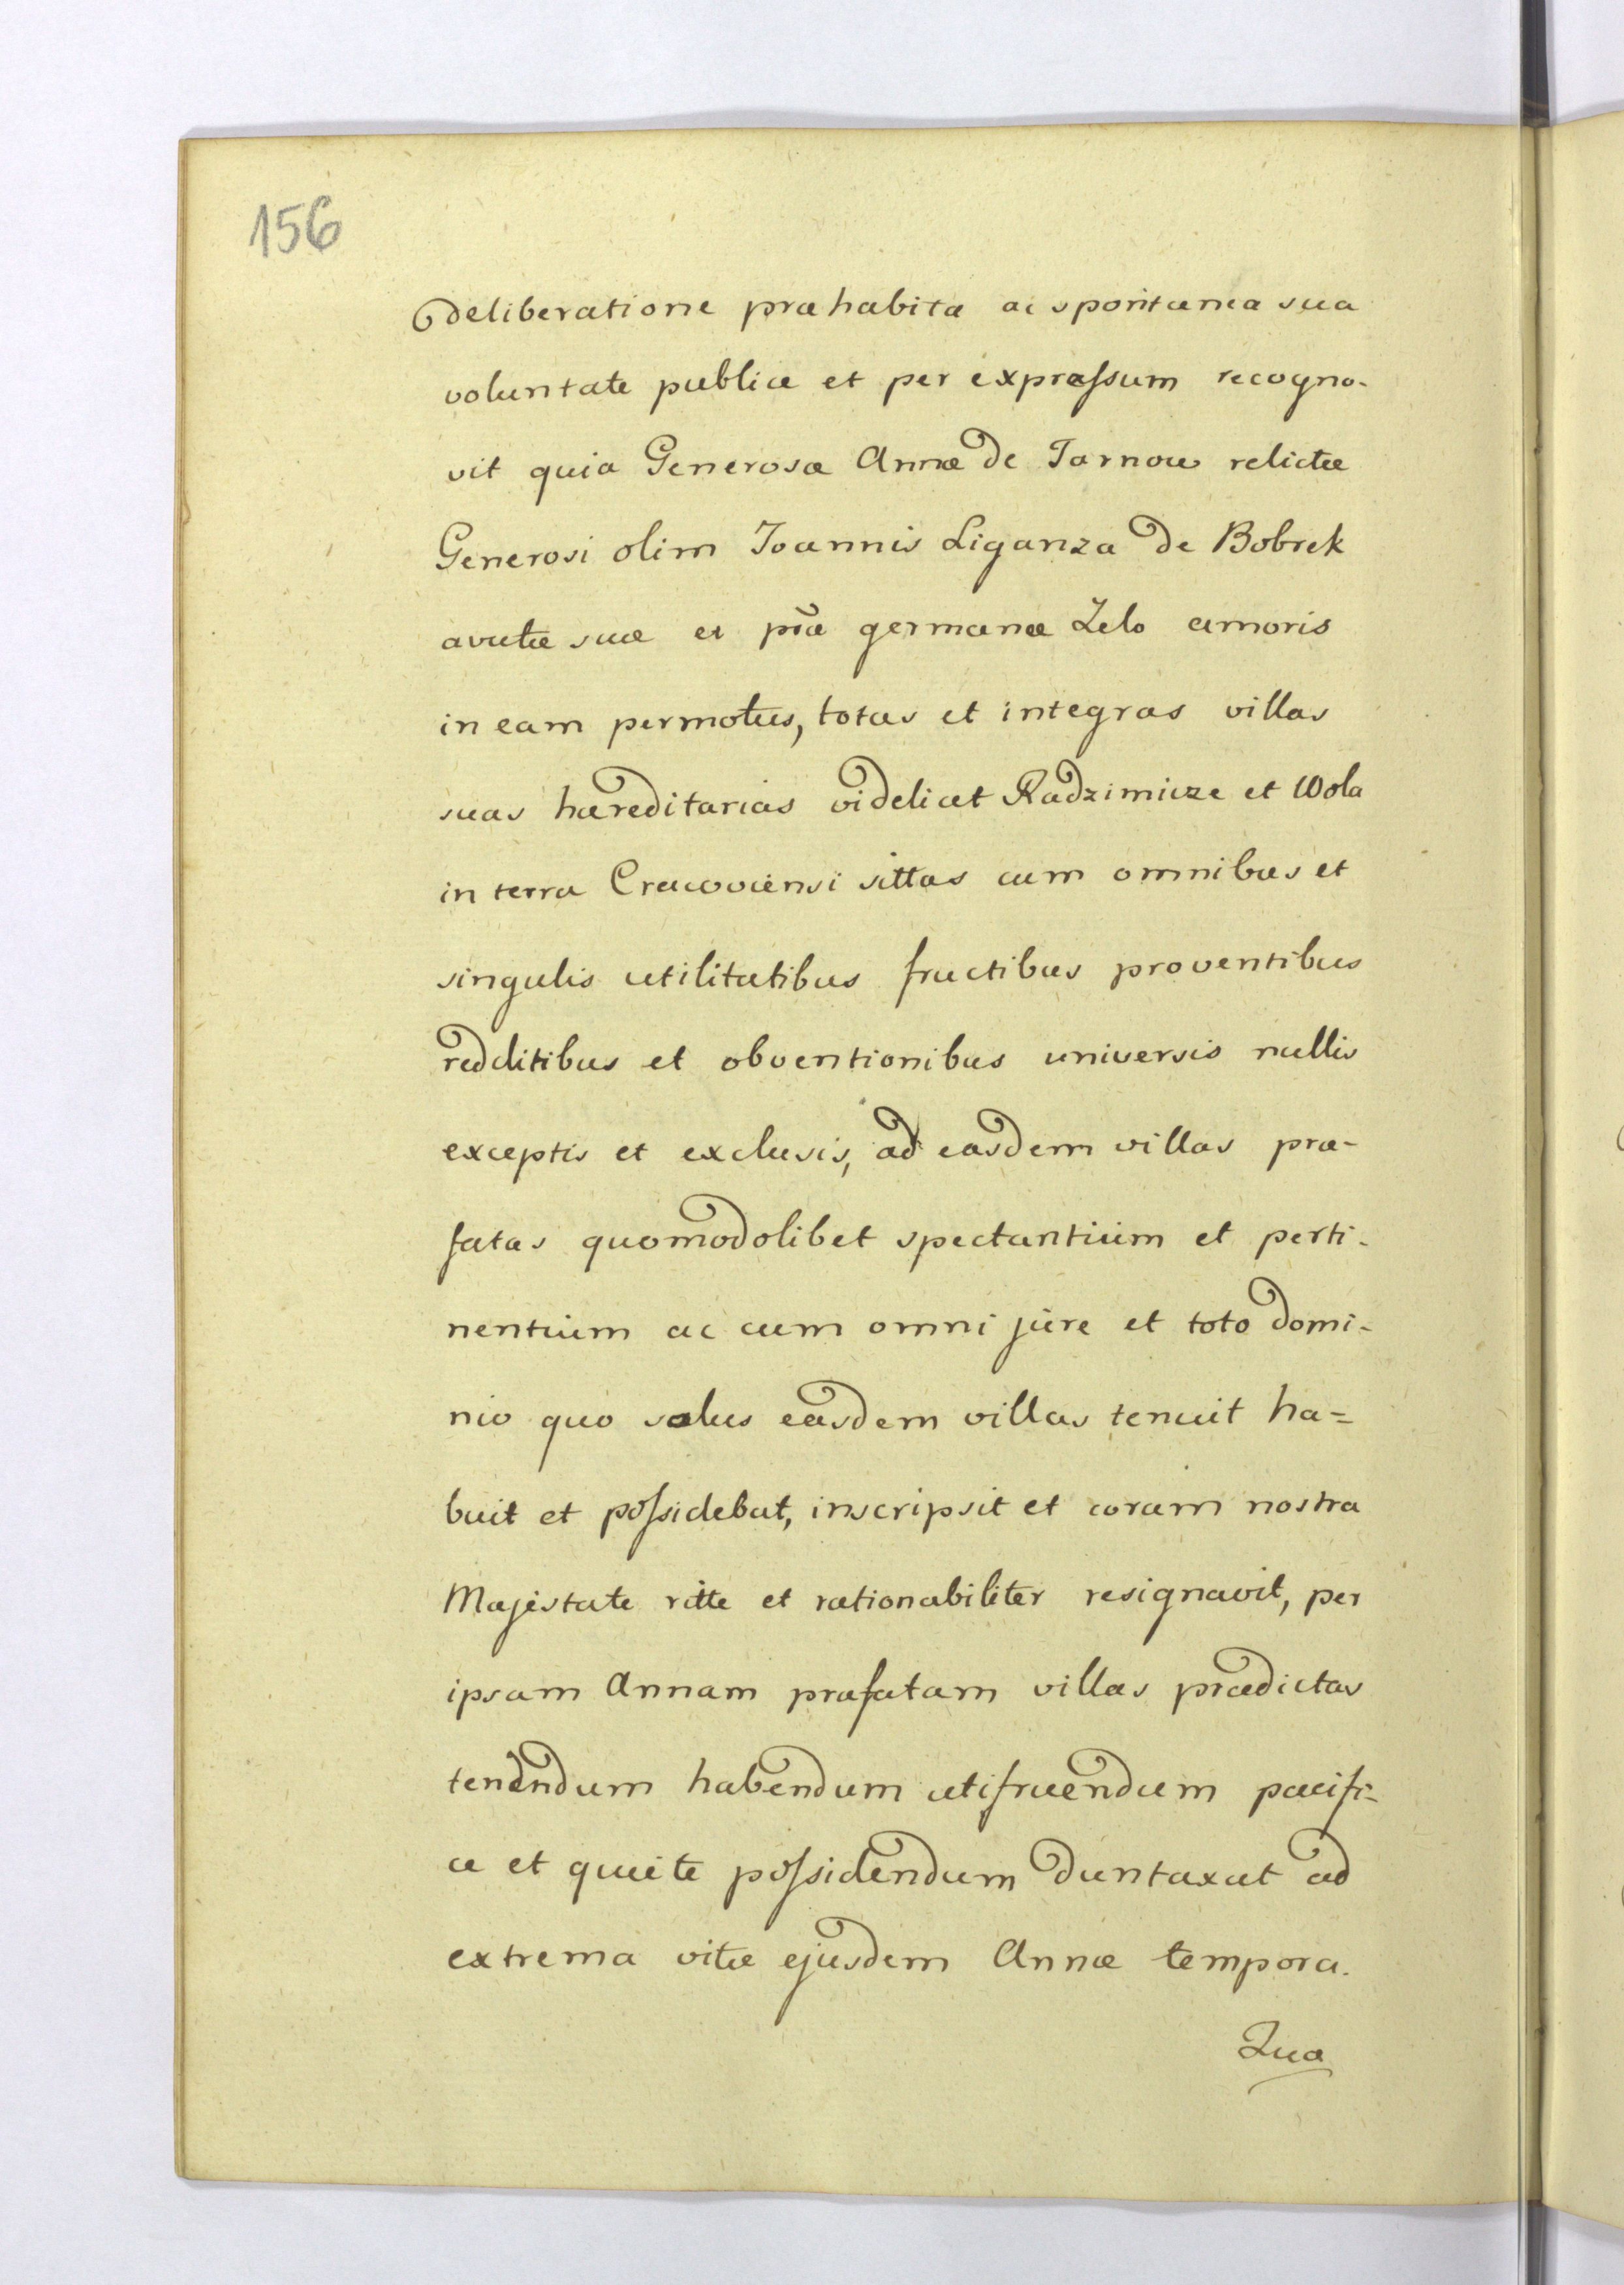 156
deliberatione præhabita ac spontanea sua
voluntate publice et per expressum recogno-
vit quia Generosæ Annæ de Tarnow relictæ
Generosi olim Joannis Liganza de Bobrek
avitæ suæ et germanæ Zelo amoris
in eam permotus, totas et integras villas
suas hæreditarias videlicet Radzimicze et Wola
in terra Cracoviensi sittas cum omnibus et
singulis utilitatibus fructibus proventibus
redditibus et obventionibus universis nullis
exceptis et exclusis, ad easdem villas præ-
fatas quomodolibet spectantium et perti-
nentium ac cum omni jure et toto domi-
nio quo solus easdem villas tenuit ha=
buit et possidebat, inscripsit et coram nostra
Majestate ritte et rationabiliter resignavit, per
ipsam Annam præfatam villas prædictas
tenendum habendum utifruendum pacifi-
ce et quiete possidendum duntaxat ad
extrema vitæ ejusdem Annæ tempora.
Qua